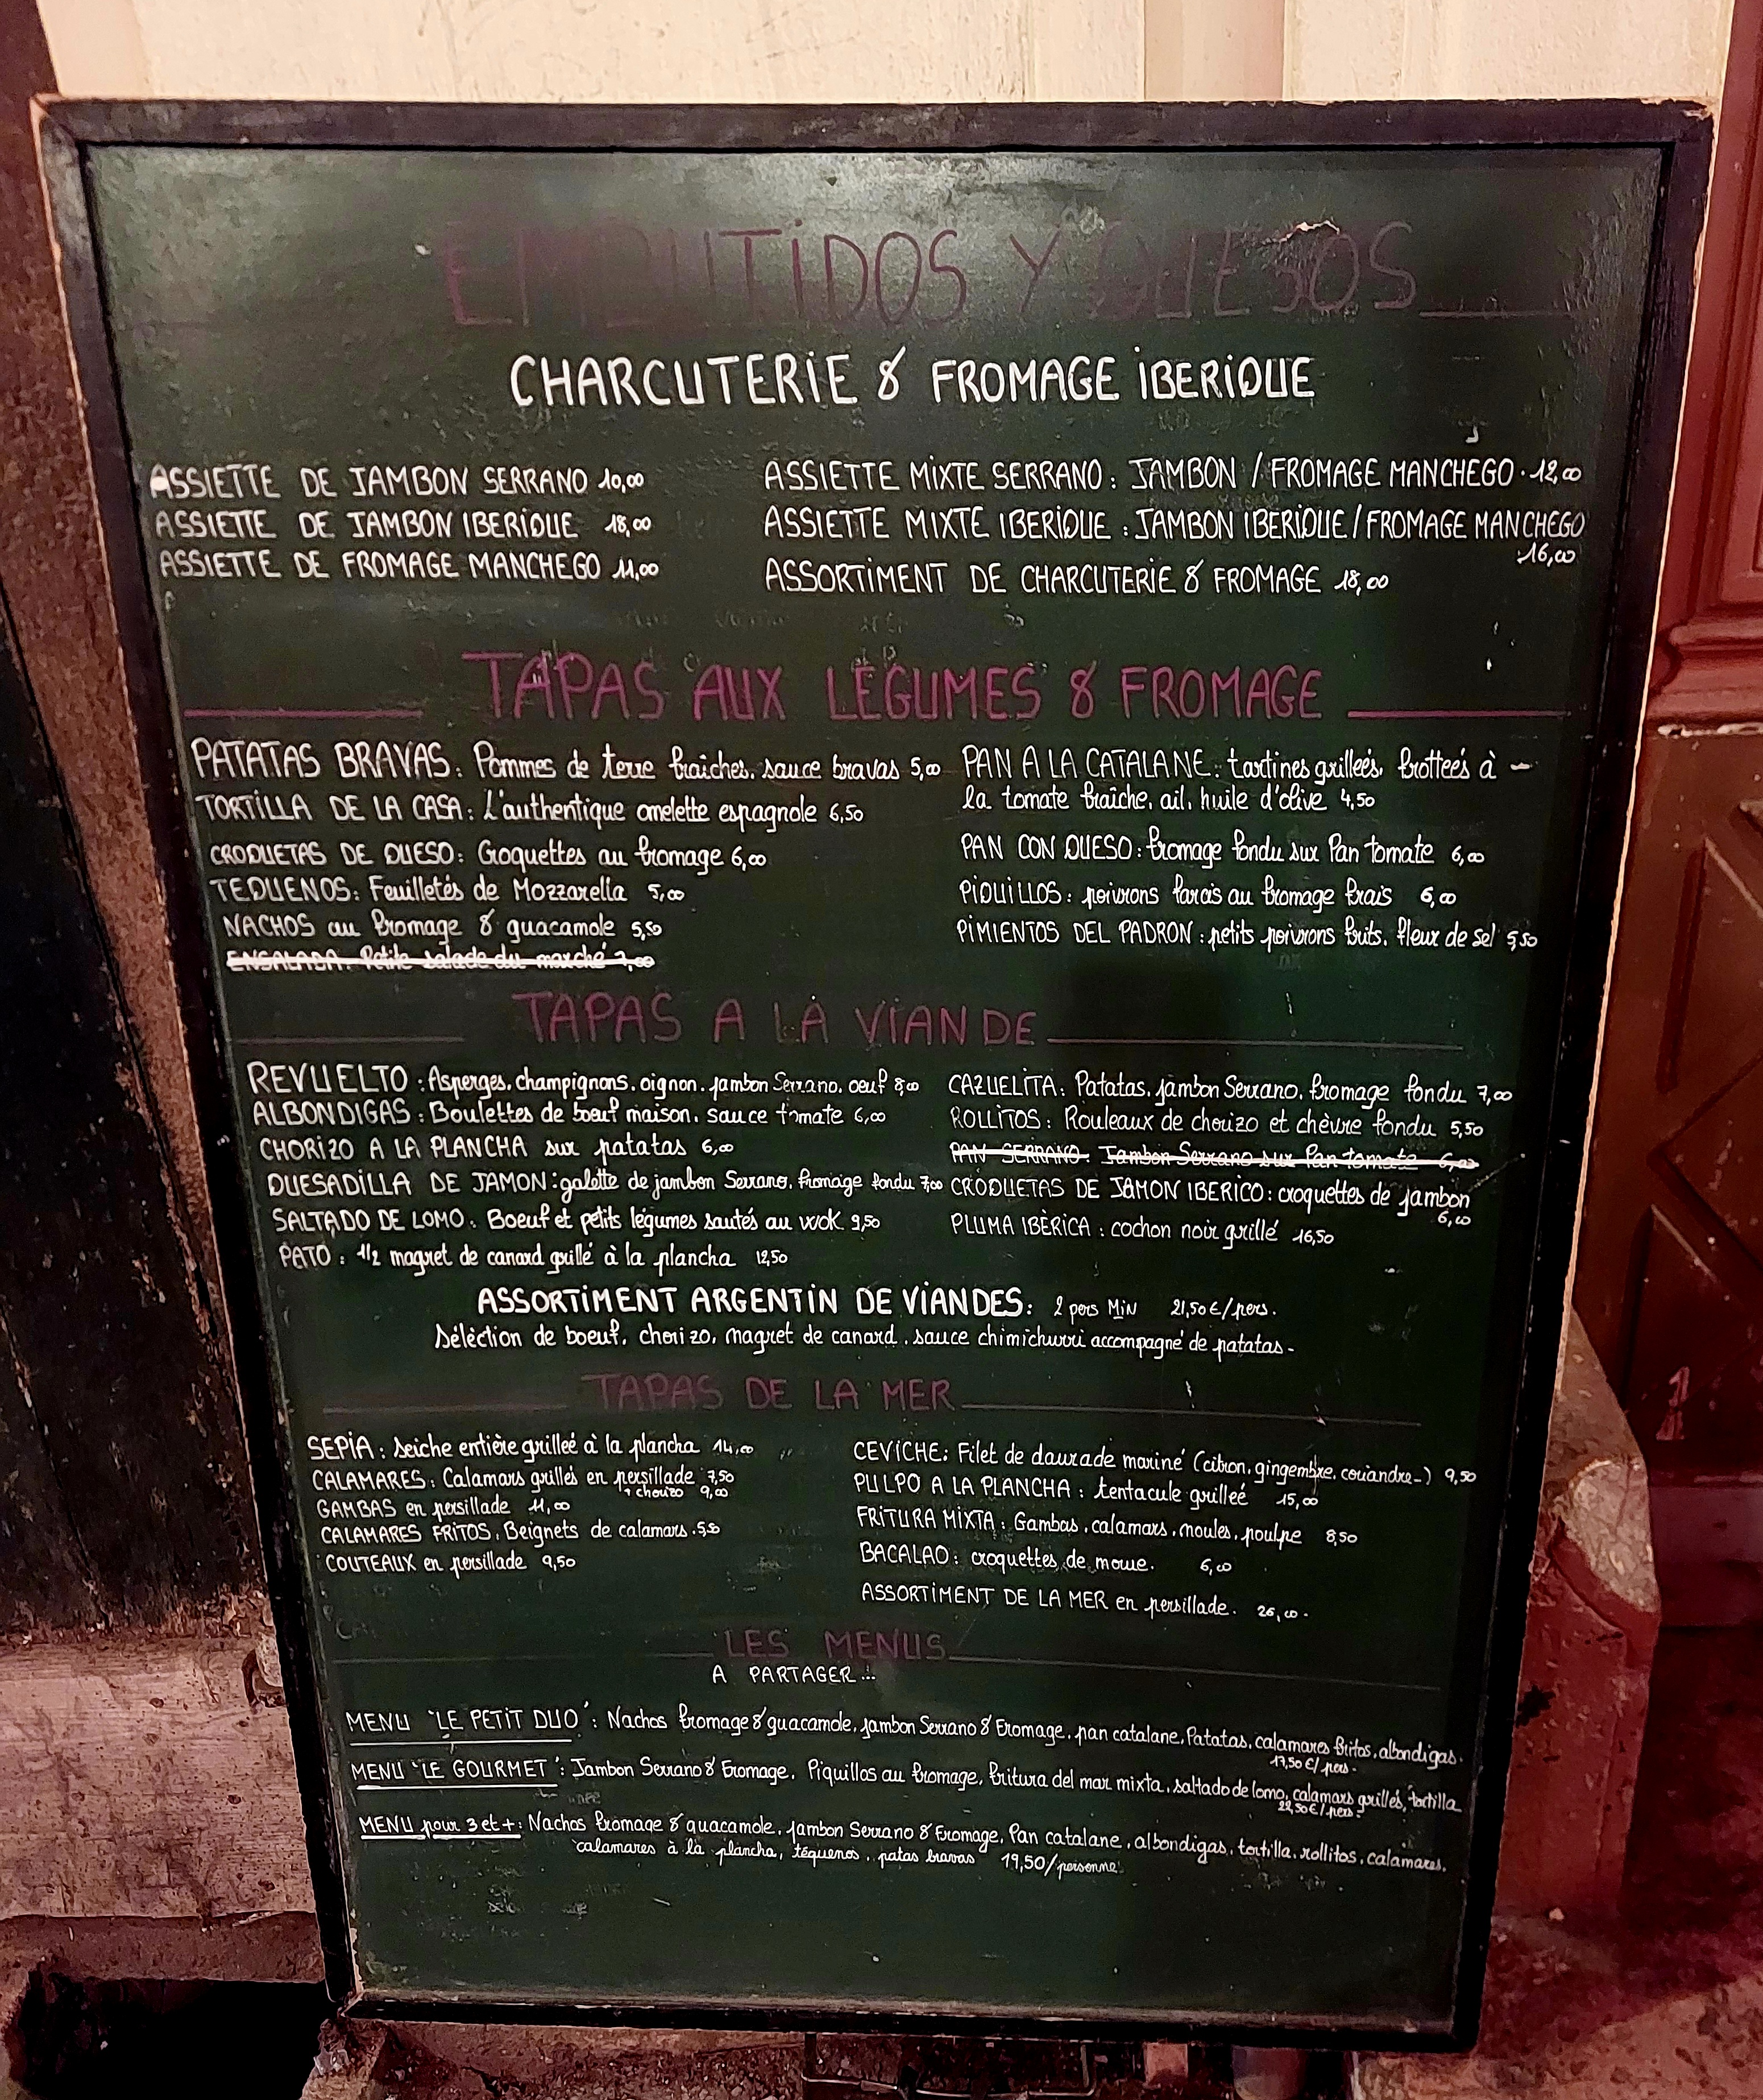 EMBUTIDOS Y QUESOS
CHARCUTERIE & FROMAGE IBERIQUE
ASSIETTE DE JAMBON SERRANO 10,00
ASSIETTE DE JAMBON IBERIQUE 18,00
ASSIETTE DE FROMAGE MANCHEGO 11,00
ASSIETTE MIXTE SERRANO : JAMBON / FROMAGE MANCHEGO . 12,00
ASSIETTE MIXTE IBERIQUE : JAMBON IBERIQUE / FROMAGE MANCHEGO
16,00
ASSORTIMENT DE CHARCUTERIE & FROMAGE 18,00
TAPAS AUX LÉGUMES & FROMAGE
PATATAS BRAVAS : Pommes de terre fraîches, sauce bravas 5,00
TORTILLA DE LA CASA : L'authentique omelette espagnole 6,50
CROQUETAS DE QUESO : Croquettes au fromage 6,00
TEQUENOS : Feuilletés de Mozzarella 5,00
NACHOS au fromage & guacamole 5,50
ENSALADA : Petite salade du marché 7,00
PAN A LA CATALANE : tartines grillées, frottées à -
la tomate fraîche, ail, huile d'olive 4,50
PAN CON QUESO : fromage fondu sur Pan tomate 6,00
PIQUILLOS : poivrons farcis au fromage frais 6,00
PIMIENTOS DEL PADRON : petits poivrons frits, fleur de sel 5,50
TAPAS A LA VIANDE
REVUELTO : Asperges, champignons, oignon, jambon Serrano, oeuf 8,00
ALBONDIGAS : Boulettes de boeuf maison, sauce tomate 6,00
CHORIZO A LA PLANCHA sur patatas 6,00
QUESADILLA DE JAMON : galette de jambon Serrano, fromage fondu 7,00
SALTADO DE LOMO : Boeuf et petits légumes sautés au wok 9,50
PATO : 1/2 magret de canard grillé à la plancha 12,50
CAZUELITA : Patatas, jambon Serrano, fromage fondu 7,00
ROLLITOS : Rouleaux de chorizo et chèvre fondu 5,50
PAN SERRANO : Jambon Serrano sur Pan tomate 6,00
CROQUETAS DE JAMON IBERICO : croquettes de jambon
6,00
PLUMA IBÈRICA : cochon noir grillé 16,50
ASSORTIMENT ARGENTIN DE VIANDES : 2 pers MIN 21,50€/pers.
Séléction de boeuf, chorizo, magret de canard, sauce chimichurri accompagné de patatas -
TAPAS DE LA MER
SEPIA : seiche entière grillée à la plancha 14,00
CALAMARES : Calamars grillés en persillade 7,50
+ chorizo 9,00
GAMBAS en persillade 11,00
CALAMARES FRITOS : Beignets de calamars . 5,50
COUTEAUX en persillade 9,50
CEVICHE : Filet de daurade mariné (citron, gingembre, coriandre-) 9,50
PULPO A LA PLANCHA : tentacule grilleé 15,00
FRITURA MIXTA : Gambas, calamars, moules, poulpe 8,50
BACALAO : croquettes de morue. 6,00
ASSORTIMENT DE LA MER en persillade. 26,00.
LES MENUS
A PARTAGER ...
MENU "LE PETIT DUO" : Nachos fromage & guacamole, jambon Serrano & Fromage, pan catalane, Patatas, calamares fritos, albondigas.
17,50€/pers.
MENU "LE GOURMET" : Jambon Serrano & Fromage, Piquillos au fromage, fritura del mar mixta, saltado de lomo, calamars grillés, tortilla
22,50€/pers.
MENU pour 3 et + : Nachos fromage & guacamole, jambon Serrano & Fromage, Pan catalane, albondigas, tortilla, rollitos, calamares.
calamares à la plancha, téquenos, patas bravas 19,50/personne